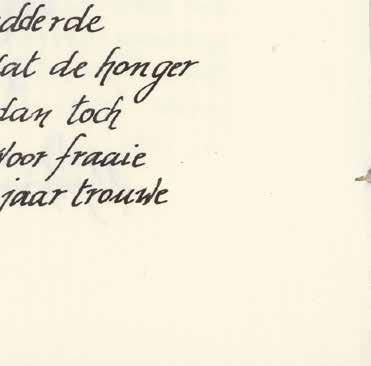 dderde
dat de honger
dan toch
Voor fraaie
jaar trouwe